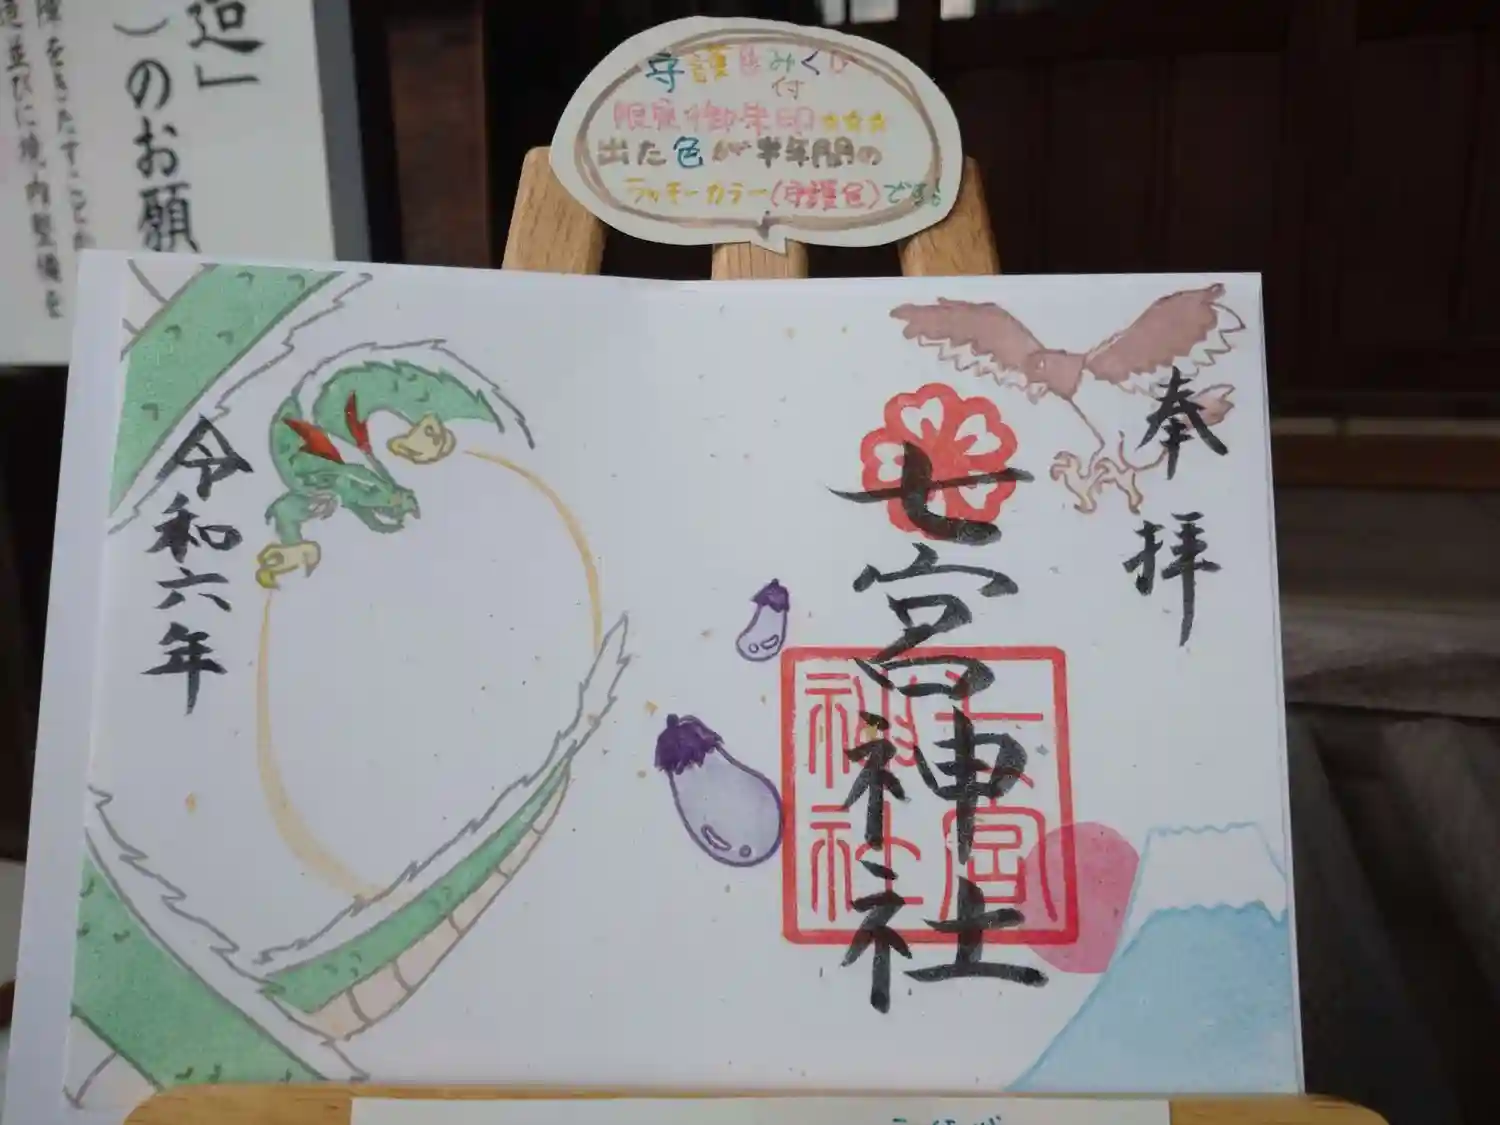 守護色みくじ
付
限定御朱印☆☆☆
出た色が半年間の
ラッキーカラー(守護色)です。
奉拝
七宮神社
七宮神社
令和六年
のお願
障をきたすことが
並びに境内整備を